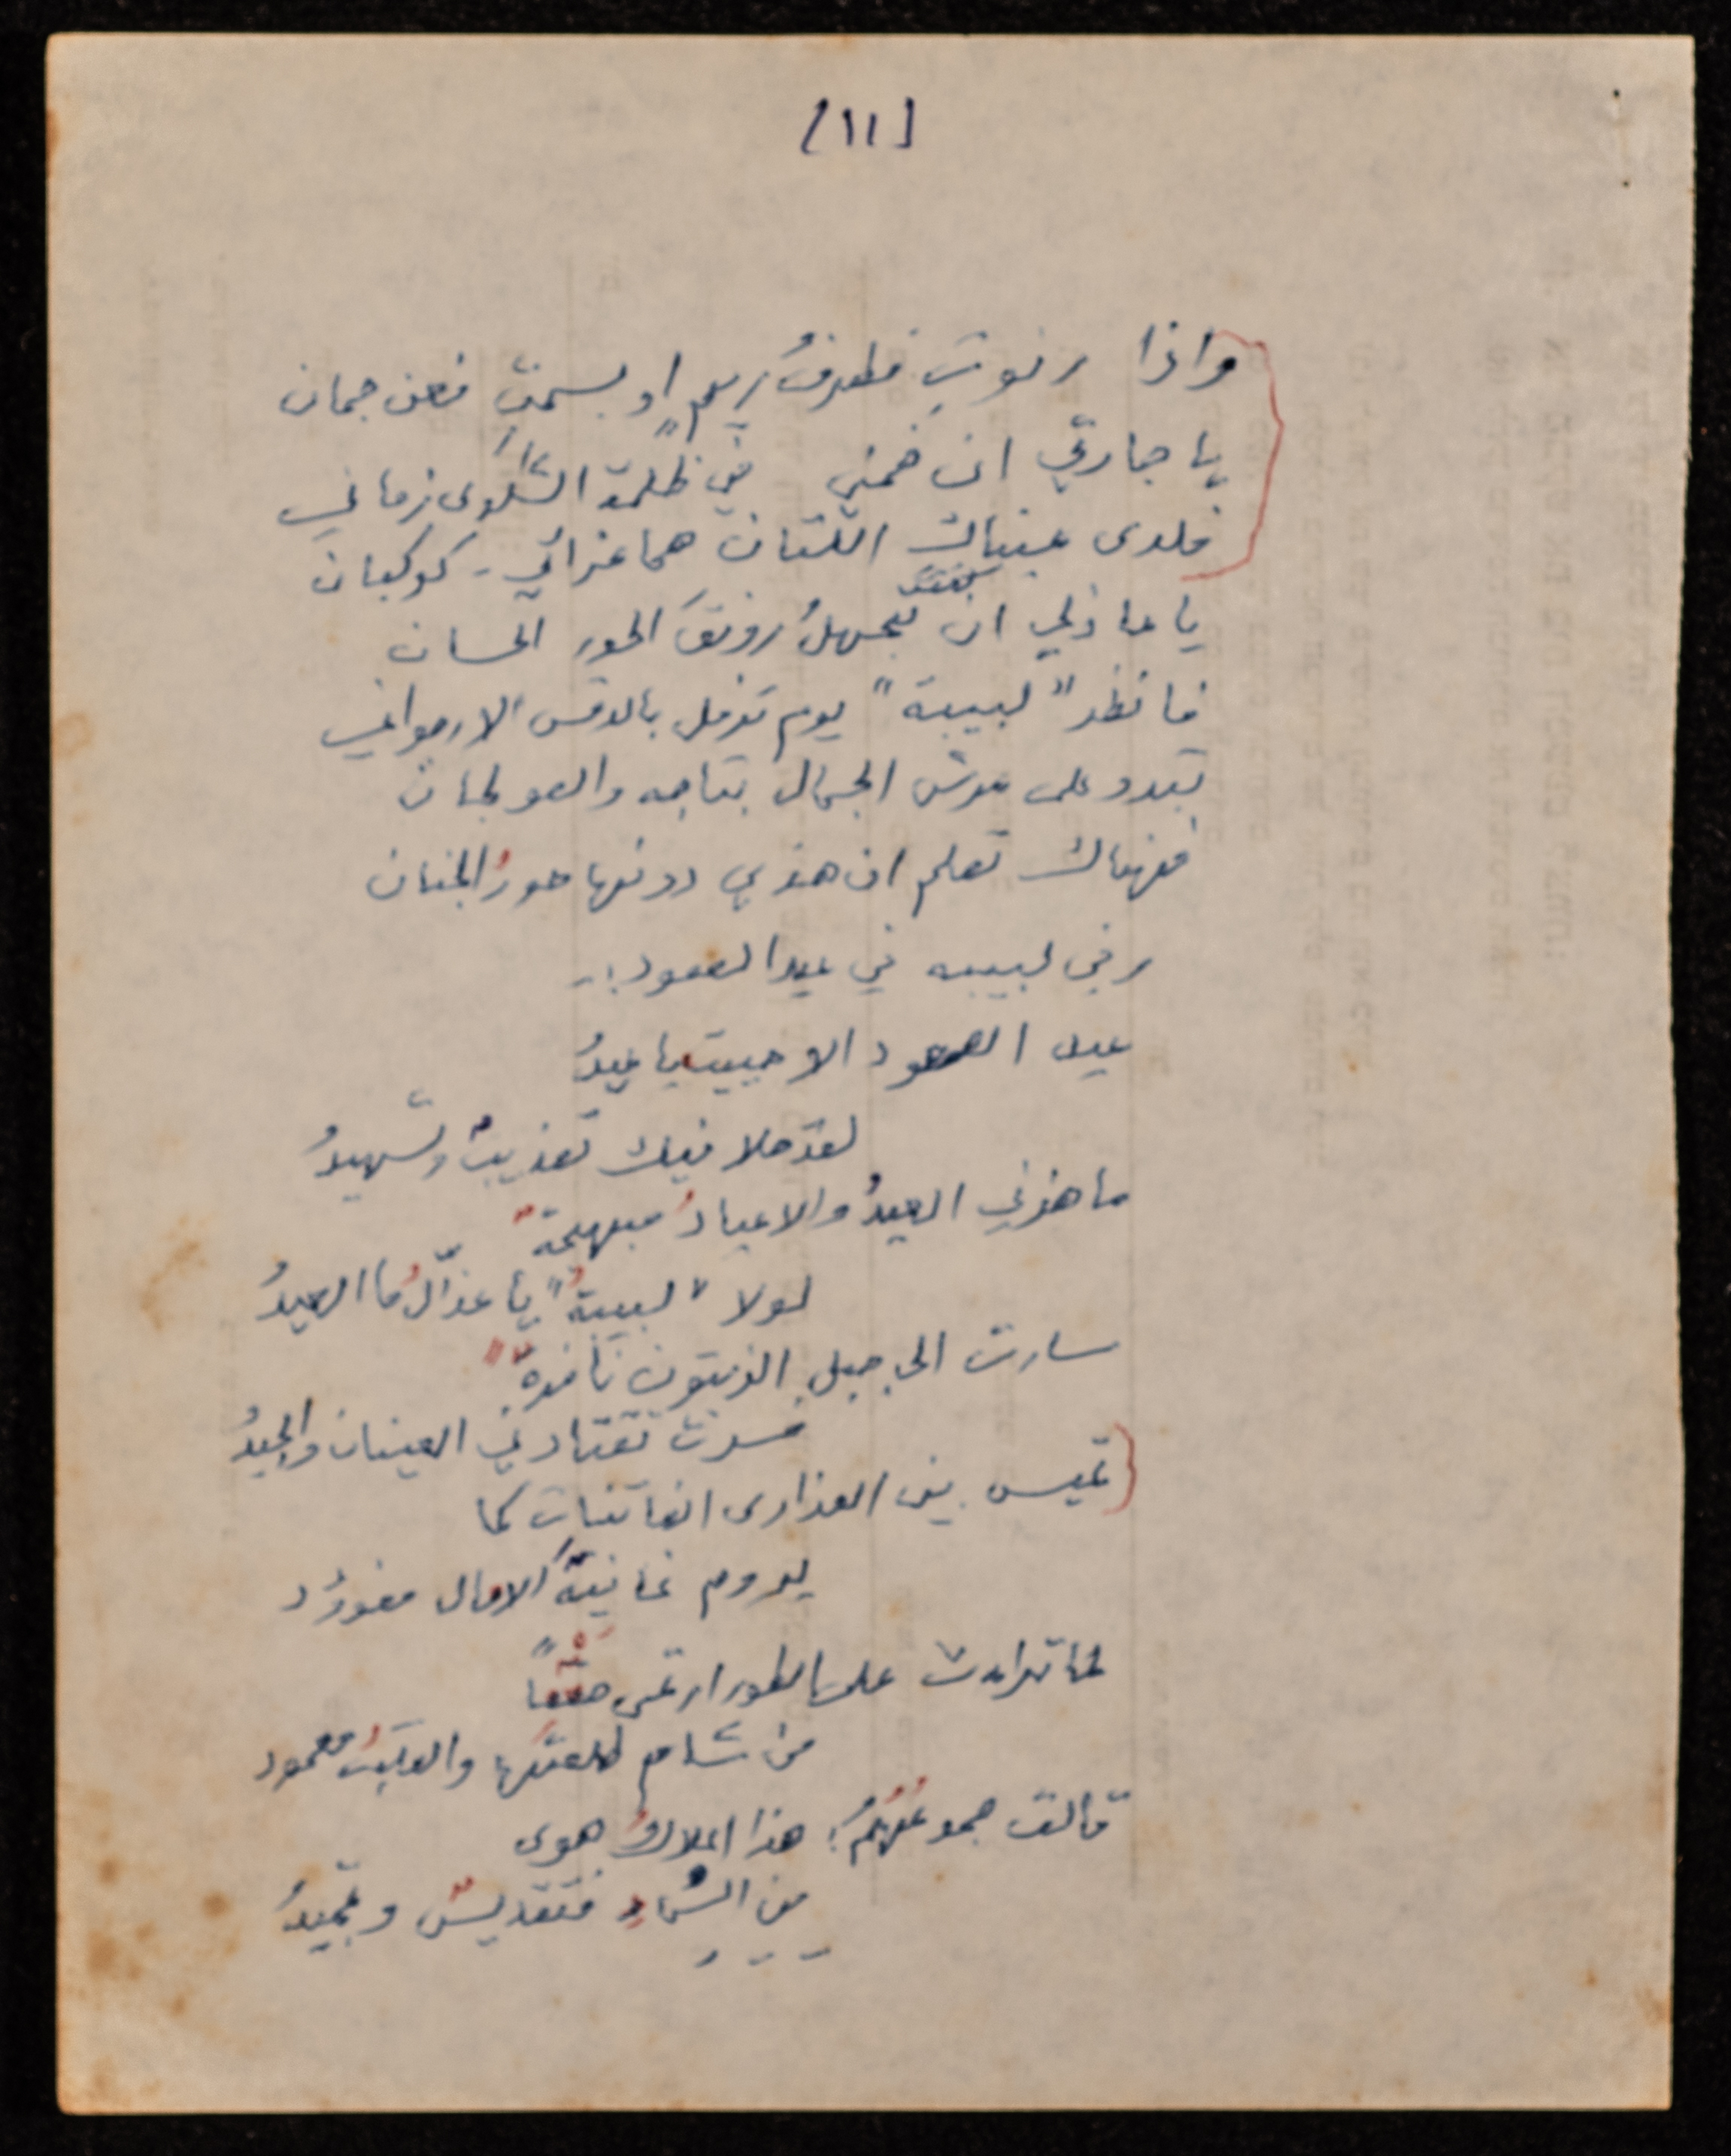 [١١]
واذا رنوتِ فطرفُ ريمٍ او بسمتِ فعن جمان
يا جارتي ان ضمني في ظلمة الشكوى زماني
فلدى عيناك اللتان هما عزائي - كوكبان
يا عاذلي ان تجهلُ رونقَ الحور الحسان
فانظر "لبيبة" يوم ترفل بالدمقس الارجواني
تبدو على عرش الجمال بتاجه والصولجان
فهناك تعلم ان هذي دونها حورُ الجنان
وفي لبيبه في عيد الصعود :-
عيد الصعود الا حييت يا عيدُ
لقد حلا فيك تعذيبٌ وتسهيدُ
ما هزني العيدُ والاعيادُ مبهجةٌ
لولا "لبيبةُ" يا عذّالُ ما العيدُ
سارت الى جبل الزيتون نافرةً
فسرت تقتادني العينان والجيدُ
تميس بين العذارى الفاتنات كما
يروم غانيةَ الامال مفؤود
لما تراءت على الطور ارتمى صعقاً
من شام طلعتَها والقلبُ معمود
قالت جموعُهُمُ: هذا الملاكُ هوى
من السماءِ فتقديسٌ وتمجيدُ